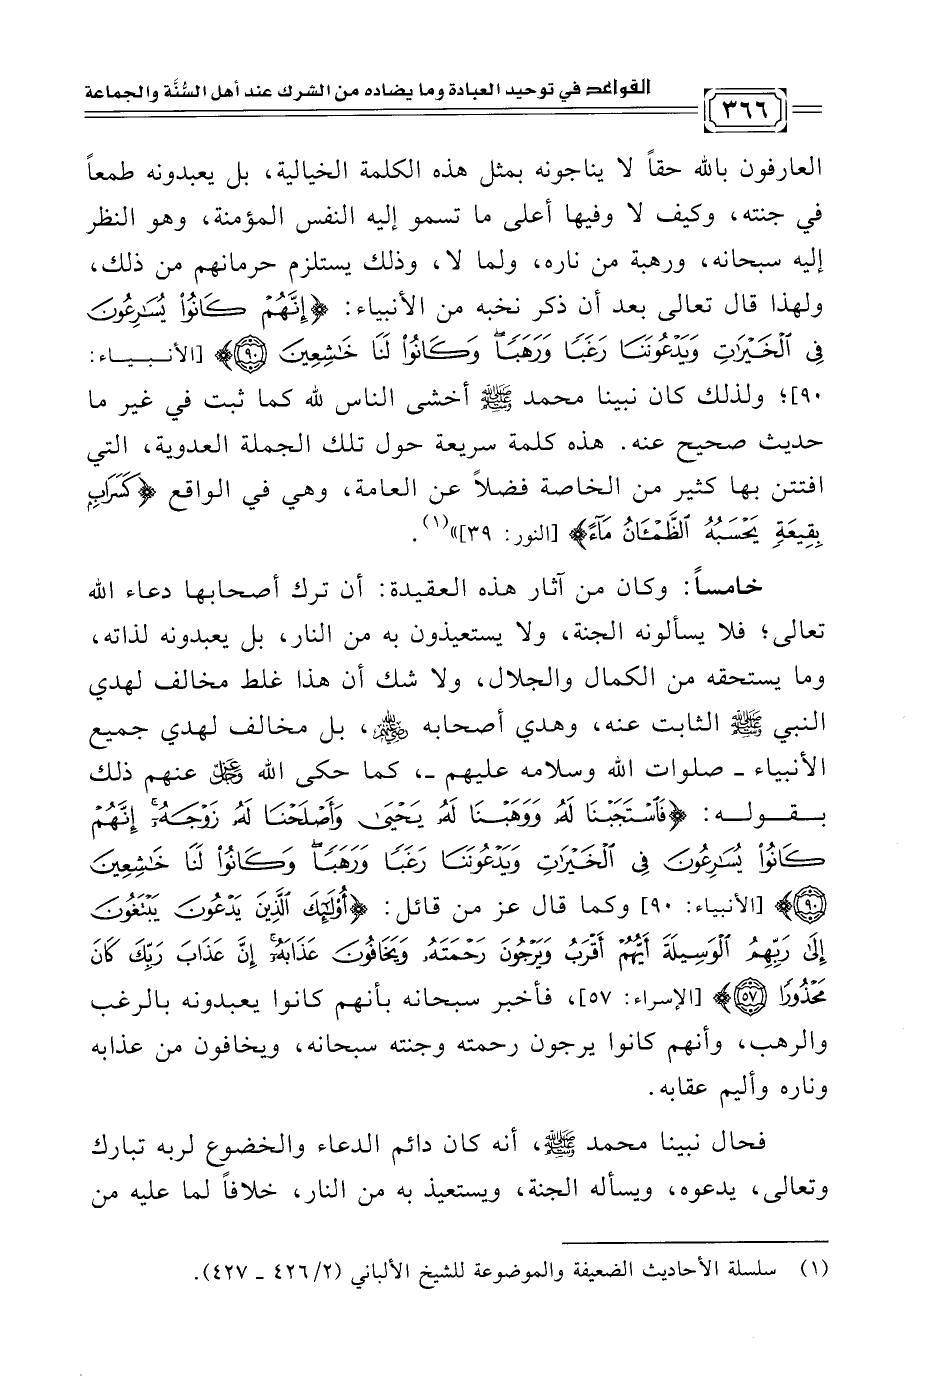 القواعد في توحيد العبادة وما يضاده من الشرك عند أهل السُّنَّة والجماعة
٣٦٦
العارفون بالله حقاً لا يناجونه بمثل هذه الكلمة الخيالية، بل يعبدونه طمعاً
في جنته، وكيف لا وفيها أعلى ما تسمو إليه النفس المؤمنة، وهو النظر
إليه سبحانه، ورهبة من ناره، ولما لا، وذلك يستلزم حرمانهم من ذلك،
ولهذا قال تعالى بعد أن ذكر نخبه من الأنبياء: ﴿إِنَّهُمْ كَانُوا۟ يُسَٰرِعُونَ
فِى ٱلْخَيْرَٰتِ وَيَدْعُونَنَا رَغَبًا وَرَهَبًا ۖ وَكَانُوا۟ لَنَا خَٰشِعِينَ ٩٠﴾ [الأنبياء:
٩٠]؛ ولذلك كان نبينا محمد ﷺ أخشى الناس لله كما ثبت في غير ما
حديث صحيح عنه. هذه كلمة سريعة حول تلك الجملة العدوية، التي
افتتن بها كثير من الخاصة فضلاً عن العامة، وهي في الواقع ﴿كَسَرَابٍۭ
بِقِيعَةٍ يَحْسَبُهُ ٱلظَّمْـَٔانُ مَآءً﴾ [النور: ٣٩]»(١).
خامساً: وكان من آثار هذه العقيدة: أن ترك أصحابها دعاء الله
تعالى؛ فلا يسألونه الجنة، ولا يستعيذون به من النار، بل يعبدونه لذاته،
وما يستحقه من الكمال والجلال، ولا شك أن هذا غلط مخالف لهدي
النبي ﷺ الثابت عنه، وهدي أصحابه ﵃، بل مخالف لهدي جميع
الأنبياء ـ صلوات الله وسلامه عليهم ـ، كما حكى الله ﷻ عنهم ذلك
بقوله: ﴿فَٱسْتَجَبْنَا لَهُۥ وَوَهَبْنَا لَهُۥ يَحْيَىٰ وَأَصْلَحْنَا لَهُۥ زَوْجَهُۥٓ ۚ إِنَّهُمْ
كَانُوا۟ يُسَٰرِعُونَ فِى ٱلْخَيْرَٰتِ وَيَدْعُونَنَا رَغَبًا وَرَهَبًا ۖ وَكَانُوا۟ لَنَا خَٰشِعِينَ
٩٠﴾ [الأنبياء: ٩٠] وكما قال عز من قائل: ﴿أُو۟لَٰٓئِكَ ٱلَّذِينَ يَدْعُونَ يَبْتَغُونَ
إِلَىٰ رَبِّهِمُ ٱلْوَسِيلَةَ أَيُّهُمْ أَقْرَبُ وَيَرْجُونَ رَحْمَتَهُۥ وَيَخَافُونَ عَذَابَهُۥٓ ۚ إِنَّ عَذَابَ رَبِّكَ كَانَ
مَحْذُورًا ٥٧﴾ [الإسراء: ٥٧]، فأخبر سبحانه بأنهم كانوا يعبدونه بالرغب
والرهب، وأنهم كانوا يرجون رحمته وجنته سبحانه، ويخافون من عذابه
وناره وأليم عقابه.
فحال نبينا محمد ﷺ، أنه كان دائم الدعاء والخضوع لربه تبارك
وتعالى، يدعوه، ويسأله الجنة، ويستعيذ به من النار، خلافاً لما عليه من
(١) سلسلة الأحاديث الضعيفة والموضوعة للشيخ الألباني (٢/ ٤٢٦ ـ ٤٢٧).